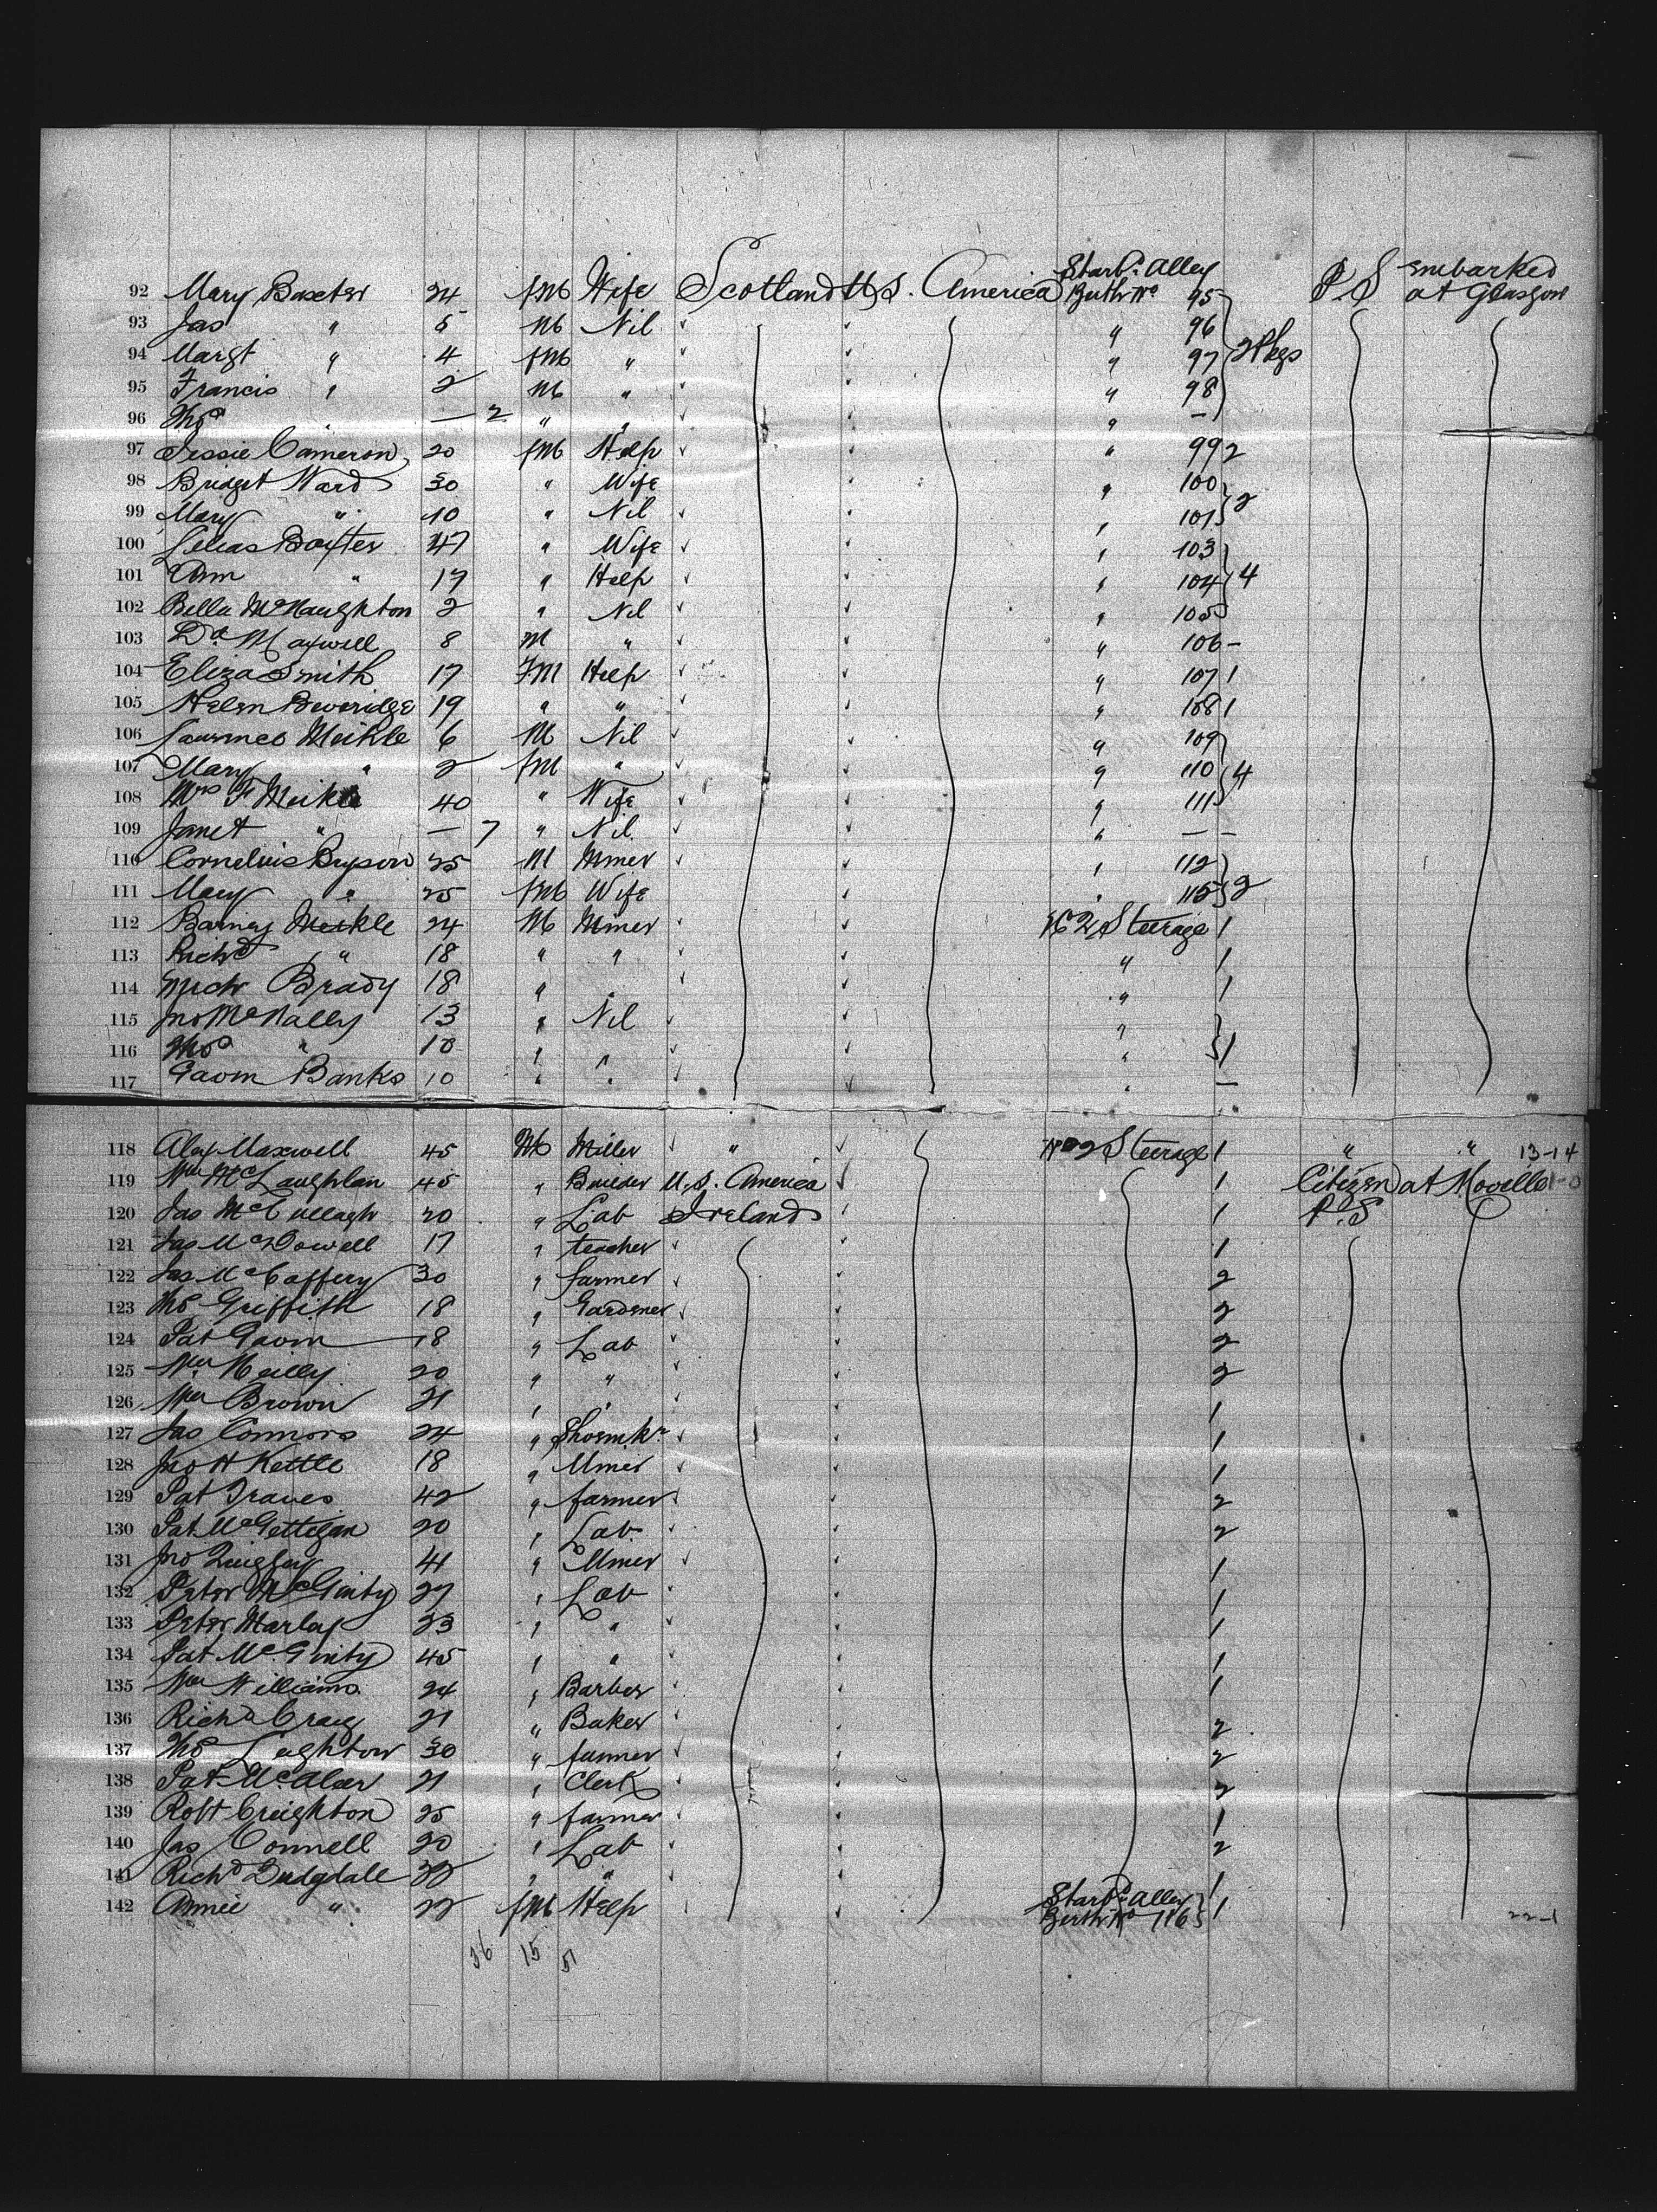 92 Mary Baxter 24 fM Wife Scotland U.S. America Starbd Alley Berth No 95 P.S embarked at Glasgow
93 Jas " 5 M Nil " 96 2 Pkgs
94 Margt " 4 fM " " 97
95 Francis " 2 M " " 98
96 Thos " — 2 " " " —
97 Jessie Cameron 20 fM Help " 99 2
98 Bridget Ward 30 " Wife " 100
99 Mary " 10 " Nil " 101 2
100 Lilias Baxter 47 " Wife " 103
101 Ann " 17 " Help " 104 4
102 Bella McNaughton 2 " Nil " 105
103 Dd Maxwell 8 M " " 106 -
104 Eliza Smith 17 F.M Help " 107 1
105 Helen Beveridge 19 " " " 108 1
106 Lawrence Meikle 6 M Nil " 109
107 Mary " 2 fM " " 110 4
108 Mrs F Meikle 40 " Wife " 111
109 Janet " — 7 " Nil " — —
110 Cornelius Bryson 25 M Miner " 112
111 Mary " 25 fM Wife " 115 2
112 Barney Meikle 24 M Miner No 2 Steerage 1
113 Richd " 18 " " " 1
114 Mich Brady 18 " " " 1
115 Jno McNally 13 " Nil "
116 Thos " 10 " " " 1
117 Gavin Banks 10 " " " —
118 Alex Maxwell 45 M Miller " No 2 Steerage 1 " " 13-14
119 Wm McLaughlan 45 " Builder U.S. America 1 Citizen at Moville 1-0
120 Jas McCullagh 20 " Lab Ireland 1 P.S
121 Jas McDowell 17 " teacher 1
122 Jas McCaffery 30 " farmer 2
123 Thos Griffith 18 " Gardener 2
124 Pat Gavin 18 " Lab 2
125 Wm Reilly 20 " " 2
126 Wm Brown 21 " " 1
127 Jas Connors 24 " Shoemkr 1
128 Jno H Kettle 18 " Miner 1
129 Pat Traves 42 " farmer 2
130 Pat McGettigan 20 " Lab 2
131 Jno Quigley 41 " Miner 1
132 Peter McGinty 27 " Lab 1
133 Peter Marley 23 " " 1
134 Pat McGinty 45 " " 1
135 Wm Williams 24 " Barber 1
136 Richd Craig 21 " Baker 2
137 Thos Leighton 30 " farmer 2
138 Pat McAleer 21 " Clerk 2
139 Robt Creighton 25 " farmer 1
140 Jas Connell 20 " Lab 2
141 Richd Dudgdale 22 " " 1
142 Annie " 22 fM Help Starbd Alley Berth No 116 1 22-1
36 15 51